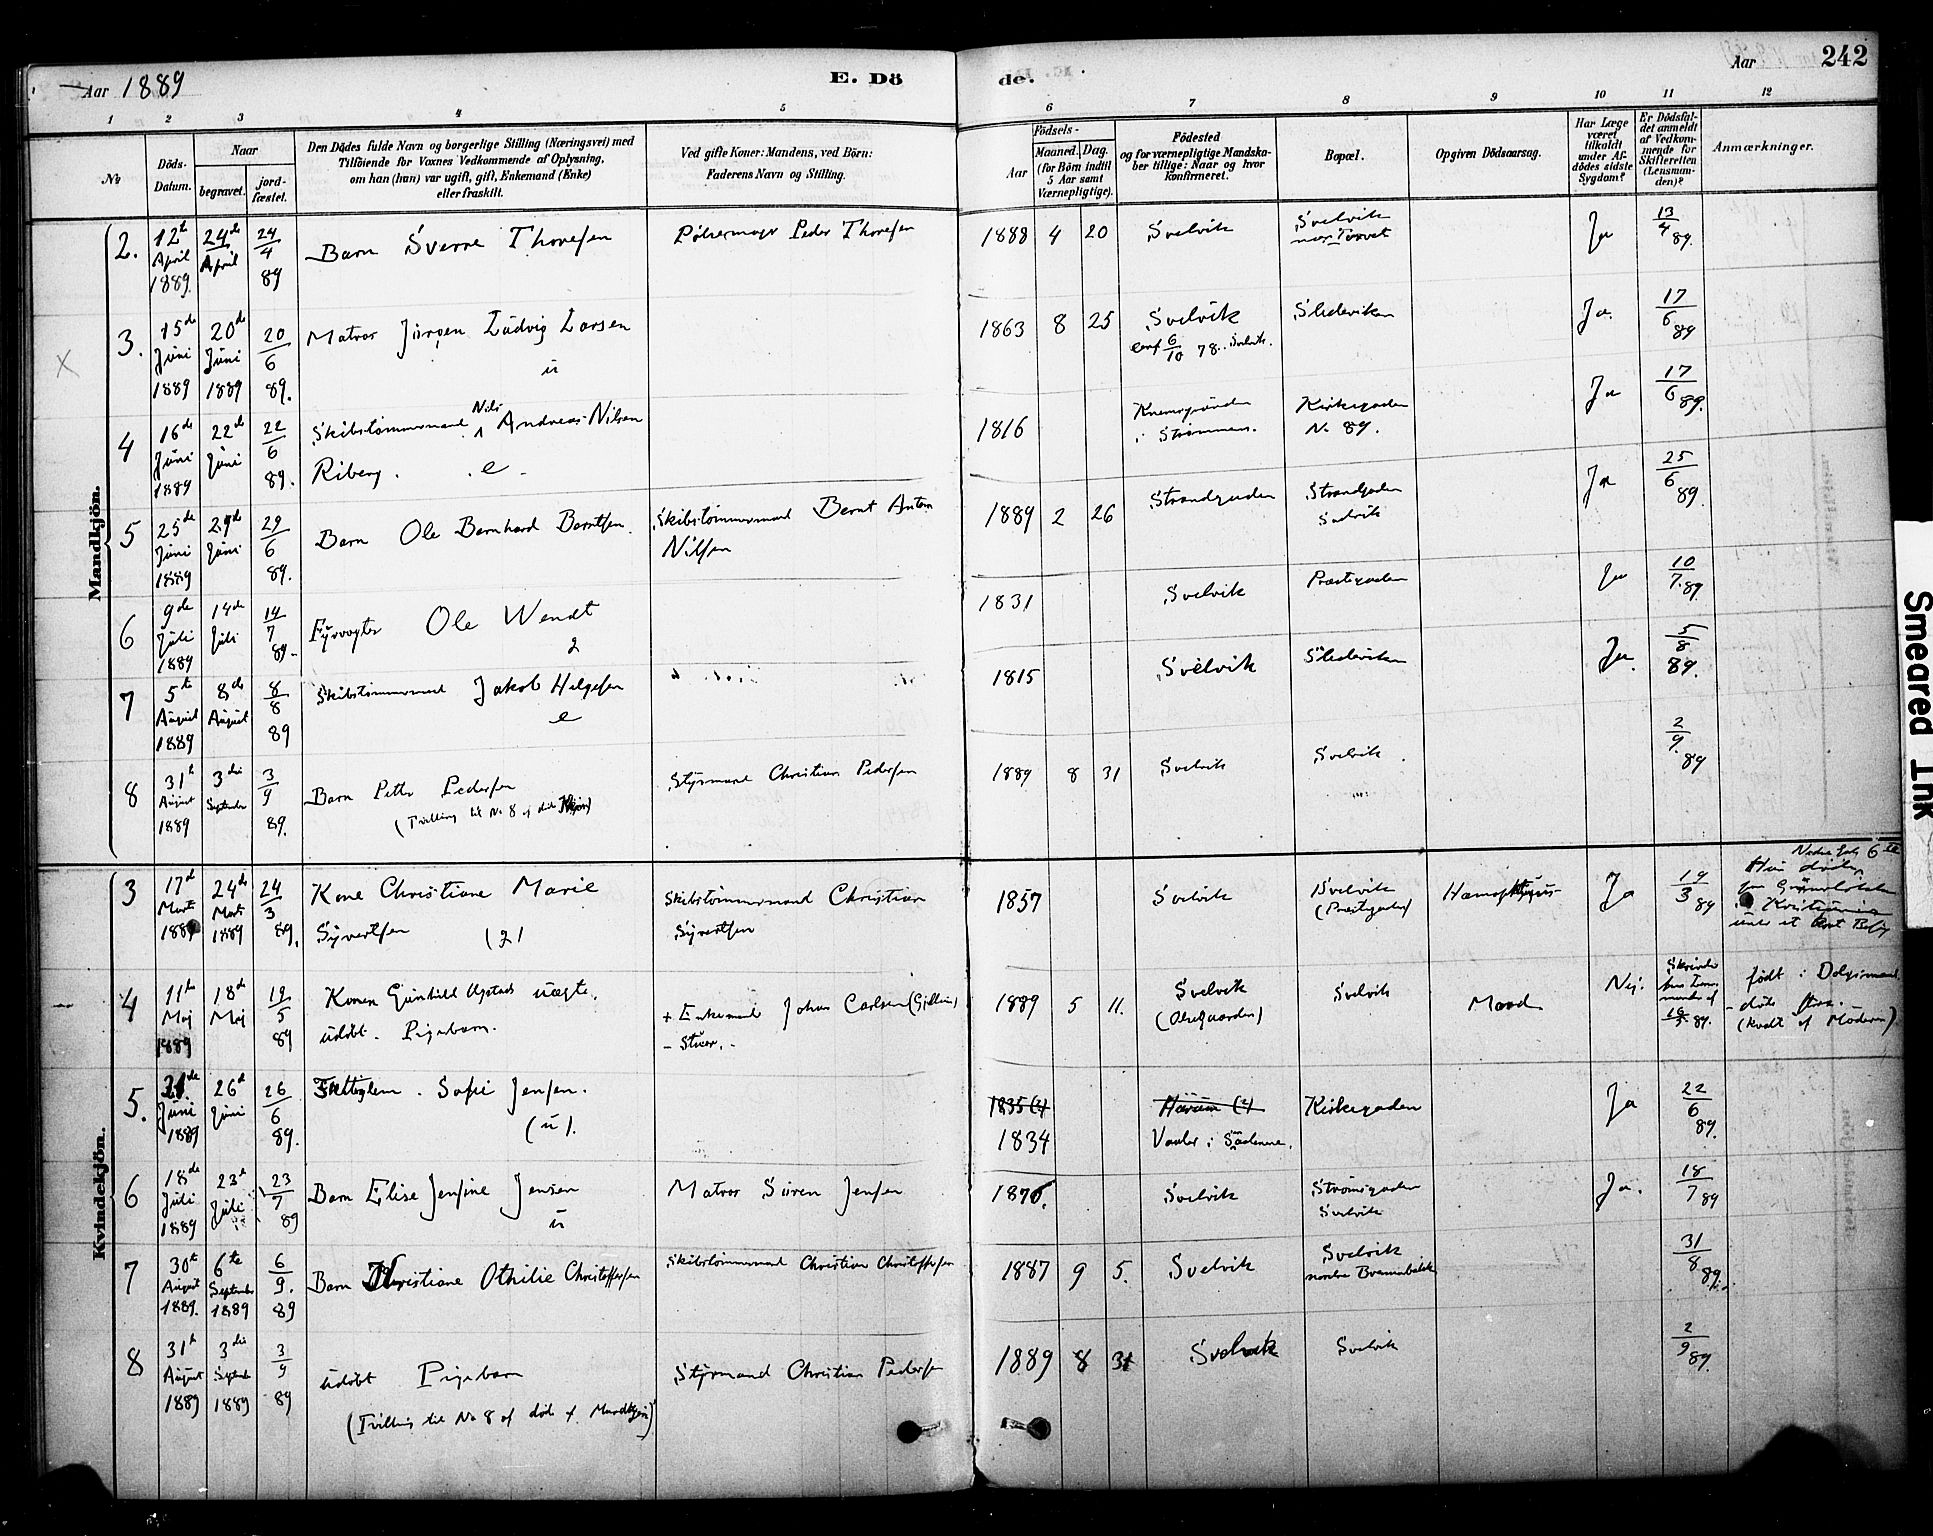 Aar 1889
E. Dö
de.
Aar
242
1 2 3 4 5 6 7 8 9 10 11 12
No
Döds-
Datum.
Naar
begravet.
jord-
fæstet.
Den Dödes fulde Navn og borgerlige Stilling (Næringsvei) med
Tilföiende for Voxnes Vedkommende af Oplysning,
om han (hun) var ugift, gift, Enkemand (Enke)
eller fraskilt.
Ved gifte Koner: Mandens, ved Börn:
Faderens Navn og Stilling.
Födsels-
Aar
Maaned. Dag.
(for Börn indtil
5 Aar samt
Værnepligtige).
Födested
og for værnepligtige Mandska-
ber tillige: Naar og hvor
konfirmeret.
Bopæl.
Opgiven Dödsaarsag.
Har Læge
været
tilkaldt
under Af-
dödes sidste
Sygdom?
Er Dödsfal-
det anmeldt
af Vedkom-
mende for
Skifteretten
(Lensman-
den)?
Anmærkninger.
Mandkjön.
2. 12te April 1889 24de April 24/4 89 Barn Sverre Thoresen Pölsemager Peder Thoresen 1888 4 20 Svelvik Svelvik Torvet Ja 13/4 89.
3. 15de Juni 1889 20de Juni 1889 20/6 89. Matros Jörgen Ludvig Larsen 1863 8 25 Svelvik Sledeviken Ja. 17/6 89
u
conf 6/10 78. Svelvik.
4 16de Juni 1889 22de Juni 22/6 89. Skibstömmermand Nils Andreas Nilsen 1816 Kirkegaden Ja 17/6 89.
Riberg. e.
i Strömmen. No 89.
5 25de Juni 1889 29de Juni 29/6 89. Barn Ole Bernhard Berntsen. Skibstömmermand Bernt Anton 1889 2 26 Strandgaden Strandgaden Ja 25/6 89
Nilsen
Svelvik
6 9de Juli 1889 14de Juli 14/7 89. Fyrvogter Ole Wendt 1831 Svelvik Præstegaden Ja 10/7 89.
g
7 5te August 1889 8de August 8/8 89 Skibstömmermand Jakob Helgesen 1815 Svelvik Sledeviken Ja. 5/8 89.
e
8 31te August 1889 3die September 3/9 89. Barn Petter Pedersen Styrmand Christian Pedersen 1889 8 31 Svelvik Svelvik 2/9 89
(Tvilling til No 8 af döde Kvkjön)
Kvindekjön.
3 17de Marts 1889 24de Marts 1889 24/3 89. Kone Christiane Marie Skibstömmermand Christian 1857 Svelvik Svelvik Ja 19/3 89 Hun döde
Syvertsen (g) Syvertsen
(Præstegaden)
Kristiania
under et Besög
4 11te Maj 1889 18de Maj 19/5 89 Konen Gunhild uægte. + Enkemand Johan Carlsen 1889 5 11. Svelvik Svelvik Nej. född i
udöbt. Pigebarn.
(kvalt af Moderen)
5. 21de Juni 1889 26de Juni 26/6 89. Fattiglem. Sofie Jensen. 1835(?) Kirkegaden Ja 22/6 89.
(u).
1834 Vaaler i
6 18de Juli 1889 23de Juli 23/7 89 Barn Elise Jensine Jensen Matros Sören Jensen 1876. Svelvik Strömsgaden Ja. 18/7 89
u
Svelvik
7 30te August 1889. 6te September 1889 6/9. 89 Barn Christiane Othilie Christoffersen Skibstömmermand Christian Christoffersen 1887 9 5. Svelvik Svelvik 31/8 89.
8 31te August 1889 3die September 1889 3/9 89 udöbt Pigebarn Styrmand Christian Pedersen 1889 8 31 Svelvik Svelvik 2/9 89.
(Tvilling til No 8 af döde f. Mandkjön)
Smeared Ink